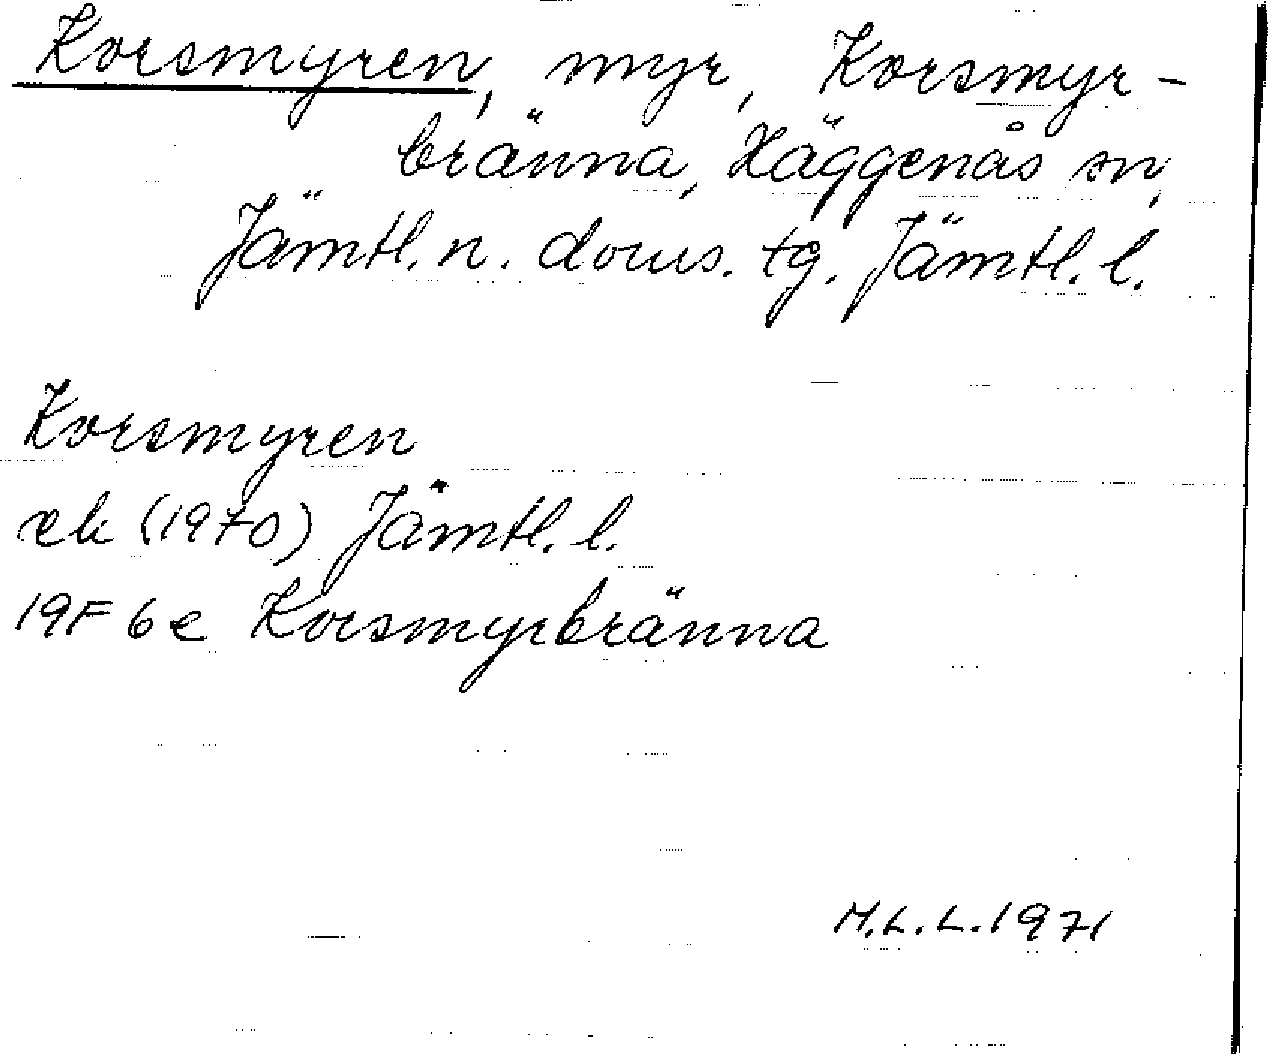 Korsmyren, myr, Korsmyr-
bränna, Häggenås sn,
Jämtl. n. doms. tg. Jämtl. l.
Korsmyren
ek (1970) Jämtl. l.
19F 6e Korsmyrbränna
M.L.L. 1971